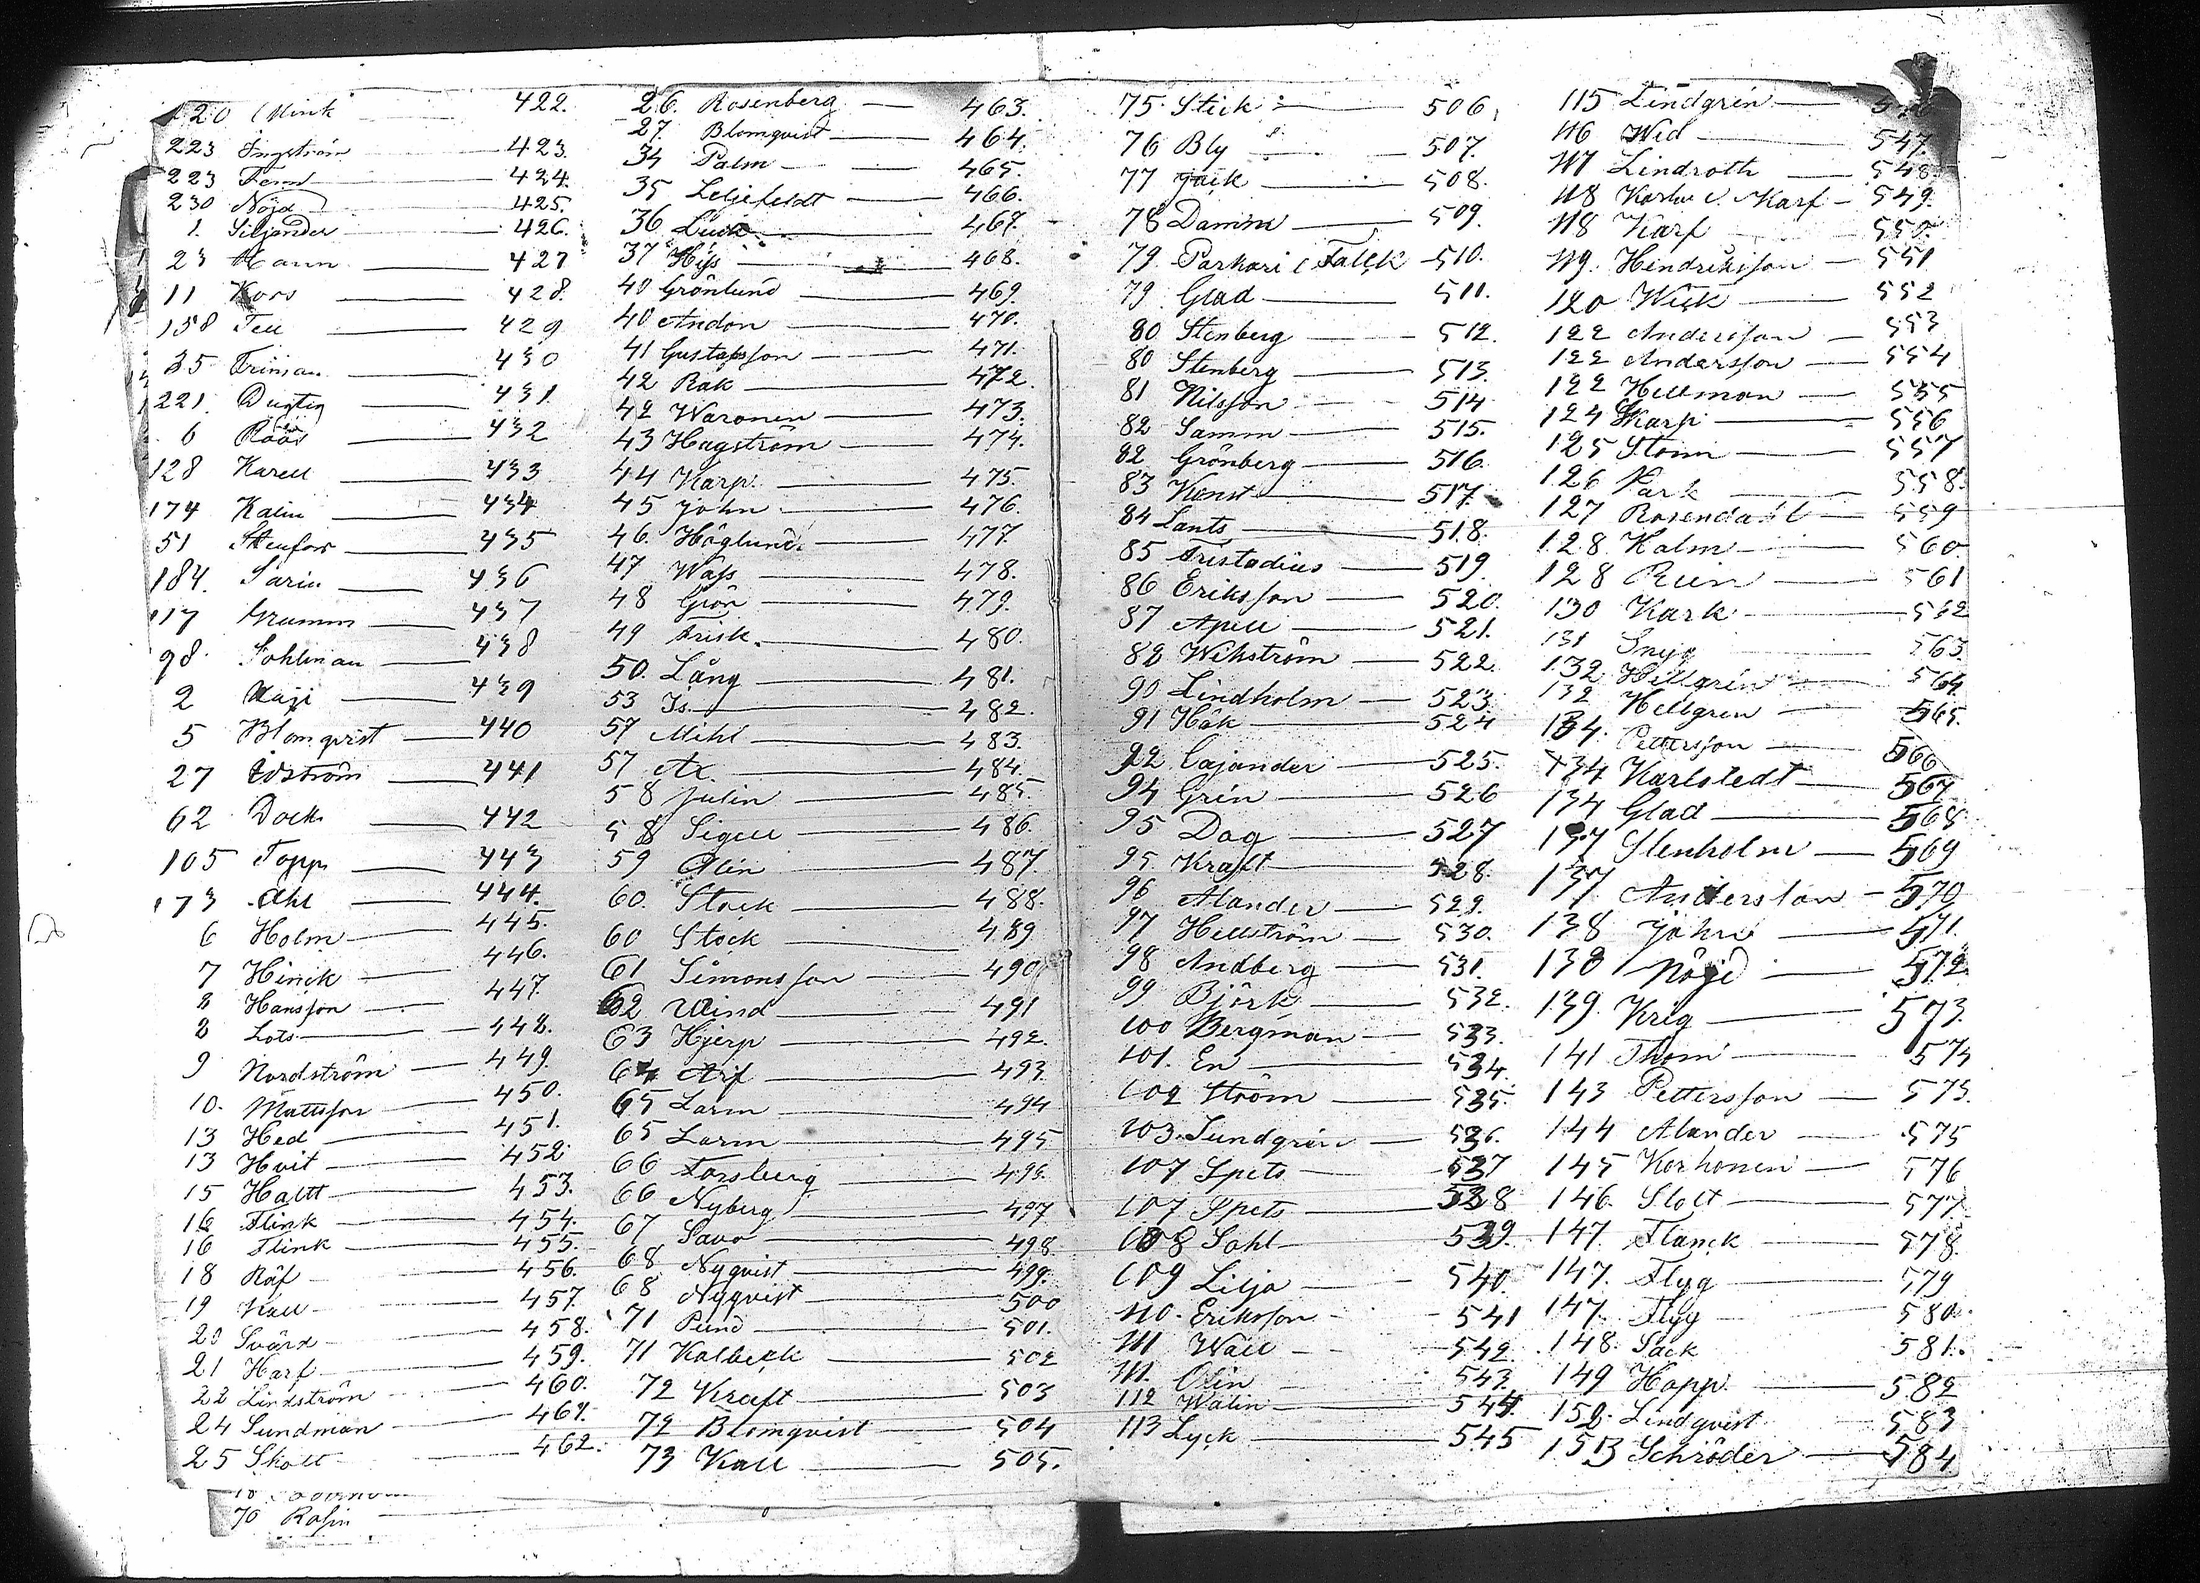 120 Mink 422.
223 Ingström 423.
223 Fem 424.
230 Nöjd 425.
1. Siljander 426.
23 Mann 427
11 Kors 428.
158 Tell 429
35 Friman 430
221. Dugtig 431
6 432
128 Karell 433
174 Kalin 434
51 Stenfors 435
184. Sarin 436
117 Grumm 437
98. Sohlman 438
2 439
5 Blomqvist 440
27 Edström 441
62 Dock 442
105 Topp 443
173 Ahl 444.
6 Holm 445.
7 Hinck 446.
8 Hansson 447.
8 Lots 448.
9 Nordström 449.
10. Mattsson 450.
13 Hed 451.
13 Hvit 452
15 Haltt 453.
16 Flink 454.
16 Flink 455.
18 Räf 456.
19 Kall 457.
20 Svärd 458.
21 Harf 459.
22 Lindström 460.
24 Sundman 461.
25 Skott 462.
70 Rosin
26. Rosenberg 463.
27. Blomqvist 464.
34 Palm 465.
35 Leljefeldt 466.
36 467.
37 Hys 468.
40 Grönlund 469.
40 Andon 470.
41 Gustafsson 471.
42 Rak 472.
42 Waronen 473.
43 Hagström 474.
44 Karp 475.
45 John 476.
46. Höglund. 477.
47 Wass 478.
48 Grön 479.
49 Frisk. 480.
50. Lång 481.
53 Is. 482.
57 Mehl 483.
57 Ax. 484.
58 Julin 485.
58 Sigell 486.
59 Olin 487.
60. Stock 488.
60 Stock 489
61 Simonsson 490
62 Wind 491
63 Hjerp 492.
64 Arf 493.
65 Larm 494
65 Larm 495
66 Forsberg 496.
66 Nyberg 497
67 Savo 498.
68 Nyqvist 499.
68 Nyqvist 500
71 Pund 501.
71 Kalbeck 502
72 Kraft 503
72 Blomqvist 504
73 Kall 505.
75. Stick 506.
76 Bly 507.
77 Jack 508.
78 Damm 509.
79 Parkari / Falck 510.
79 Glad 511.
80 Stenberg 512.
80 Stenberg 513.
81 Nilsson 514
82 Samm 515.
82 Grönberg 516.
83 Konst 517.
84 Lants 518.
85 Fristadius 519.
86 Eriksson 520.
87 Apell 521.
88 Wikström 522.
90 Lindholm 523.
91 Hök 524
92 Cajander 525.
94 Grén 526
95 Dag 527
95 Kraft 528.
96 Alander 529.
97 Hellström 530.
98 Andberg 531.
99 Björk 532.
100 Bergman 533.
101. En 534.
102 Ström 535.
103. Sundgrén 536.
107 Spets 537
107 Spets 538
108 Sahl 539.
109 Lilja 540.
110. Eriksson 541
111 Wall 542.
111. Olin 543.
112 Walin 544.
113 Lyck 545
115 Lindgrén
116 Wed 547.
117 Lindroth 548.
118 Karf 549.
118 Karf 550.
119. Hendriksson 551
120 Wick 552
122 Andersson 553
122 Andersson 554
122 Hellman 555
124 Skarp 556
125 Storm 557
126 Park 558.
127 Rosendahl 559
128 Kalm 560.
128 Rein 561
130 Kark 562
131 563.
132 Hellgrén 564.
132 Hellgren 565.
134. Pettersson 566
134 Karlstedt 567
134 Glad 568
137 Stenholm 569
137 Andersson 570
138 John 571.
138 Nöjd 572.
139. Krig 573.
141 Thom 574
143 Pettersson 575.
144 Alander 575
145 Korhonen 576
146. Slott 577.
147. Flanck 578.
147. Flyg 579
147. Flyg 580.
148. Säck 581.
149 Hopp 582
152. Lindqvist 583
153 Schröder 584